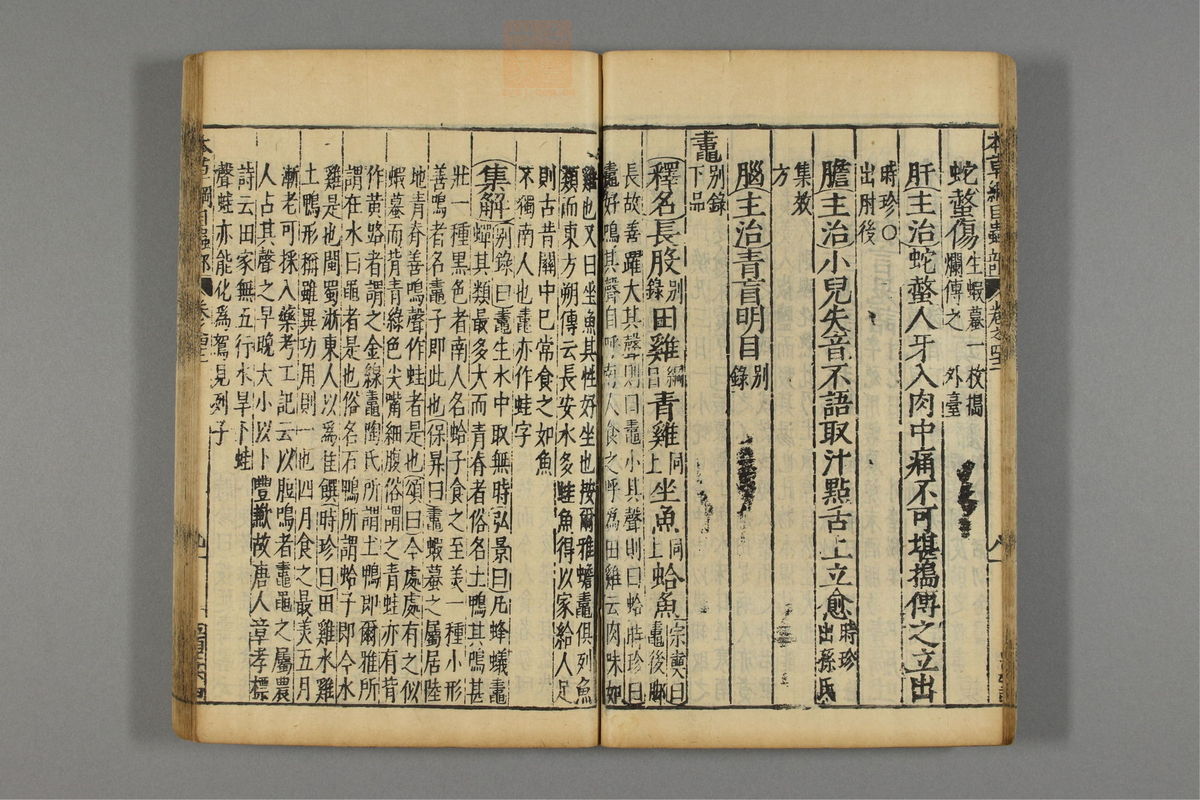 本草綱目蟲部 卷之四十二
蛇螫傷生蝦蟇一枚搗
爛傅之 外臺
肝主治蛇螫人牙入肉中痛不可堪搗傅之立出
時珍○
出肘後
膽主治小兒失音不語取汁點舌上立愈時珍
出孫氏
集效
方
腦主治青盲明目別
錄
鼃別錄
下品
釋名長股別
錄田雞綱
目青雞同
上坐魚同
上蛤魚宗奭曰
鼃後脚
長故善躍大其聲則曰鼃小其聲則曰蛤時珍曰
鼃好鳴其聲自呼南人食之呼爲田雞云肉味如
雞也又曰坐魚其性好坐也按爾雅蟾鼃俱列魚
類而東方朔傳云長安水多蛙魚得以家給人足
則古昔關中已常食之如魚
不獨南人也鼃亦作蛙字
集解別錄曰鼃生水中取無時弘景曰凡蜂蟻鼃
蟬其類最多大而青脊者俗名土鴨其鳴甚
壯一種黑色者南人名蛤子食之至美一種小形
善鳴者名鼃子即此也保昇曰鼃蝦蟇之屬居陸
地青脊善鳴聲作蛙者是也頌曰今處處有之似
蝦蟇而背青綠色尖嘴細腹俗謂之青蛙亦有背
作黃路者謂之金線鼃陶氏所謂土鴨即爾雅所
謂在水曰黽者是也俗名石鴨所謂蛤子即今水
雞是也閩蜀浙東人以爲佳饌時珍曰田雞水雞
土鴨形稱雖異功用則一也四月食之最美五月
漸老可採入藥考工記云以脰鳴者鼃黽之屬農
人占其聲之早晚大小以卜豐歉故唐人章孝標
詩云田家無五行水旱卜蛙
聲蛙亦能化爲鴽見列子
本草綱目蟲部 卷之四十二